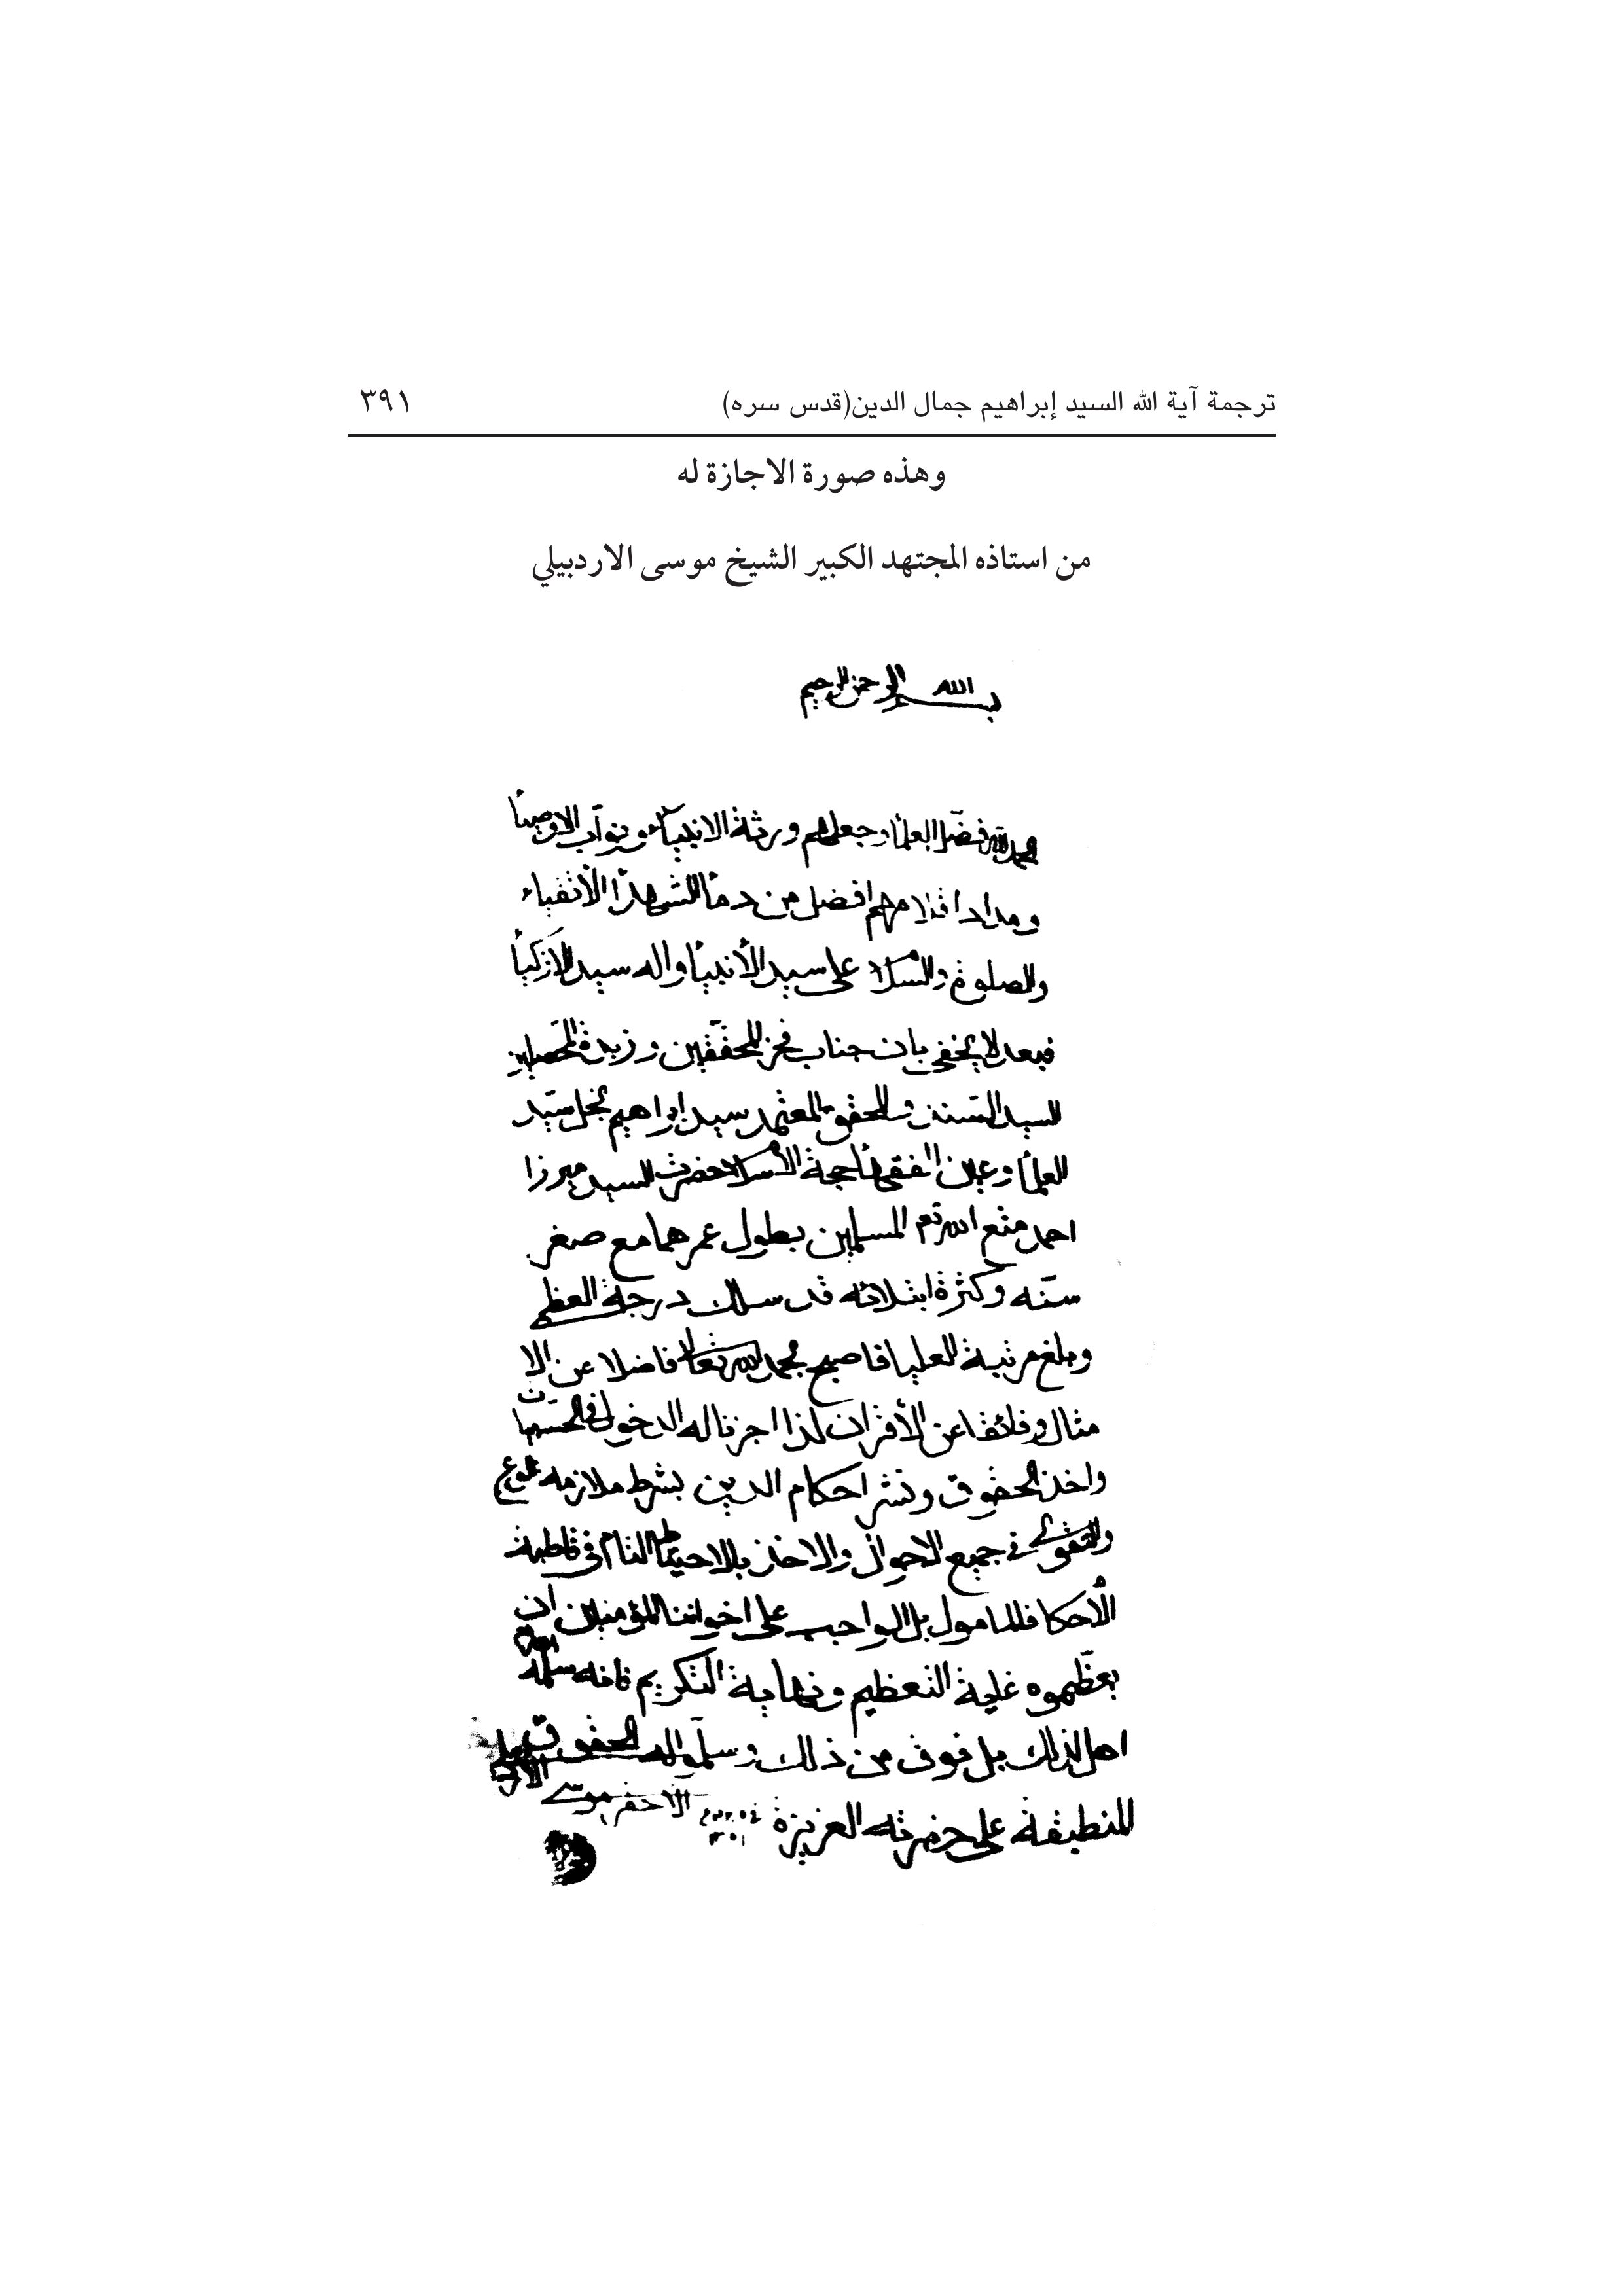 ترجمة آية الله السيد إبراهيم جمال الدين(قدس سره) ٣٩١
وهذه صورة الاجازة له
من استاذه المجتهد الكبير الشيخ موسى الاردبيلي
بسم الله الرحمن الرحيم
فضّل العلماء وجعلهم ورثة الانبياء ونوّاب الاوصياء
ومداد اقلامهم افضل من دماء الشهداء الأتقياء
والصلوة والسلام على سيد الأنبياء واله سيد الازكياء
فبعد لا يخفى بان جناب فخر المحققين وزبدة المحصلين
السيد السند والمحقق المعتمد سيد ابراهيم نجل سيّد
العلماء وعين الفقهاء حجة الأسلام حضرت السيد ميرزا
احمد متع الله تع المسلمين بطول عمرهما مع صغر
سنّه وكثرة ابتلائه قد سلك درجة العظمى
وبلغ مرتبة العليا فاصبح بحمد الله تعالى فاضلا عن الا
مثال وفائقا عن الأقران لذا اجزنا له الدخول في الحسبيات
واخذ الحقوق ونشر احكام الدين بشرط ملازمه
والتقوى في جميع الاحوال والاخذ بالاحتياط التام في قاطبة
الأحكام فالمامول بل الواجب على اخواننا المؤمنين ان
يعظّموه غاية التعظيم ونهاية التكريم فانه سلمه الله
اهل لذلك بل فوق من ذلك وسلّموا اليه الحقوق
المنطبقة على حضرته العزيزة الاحقر موسى